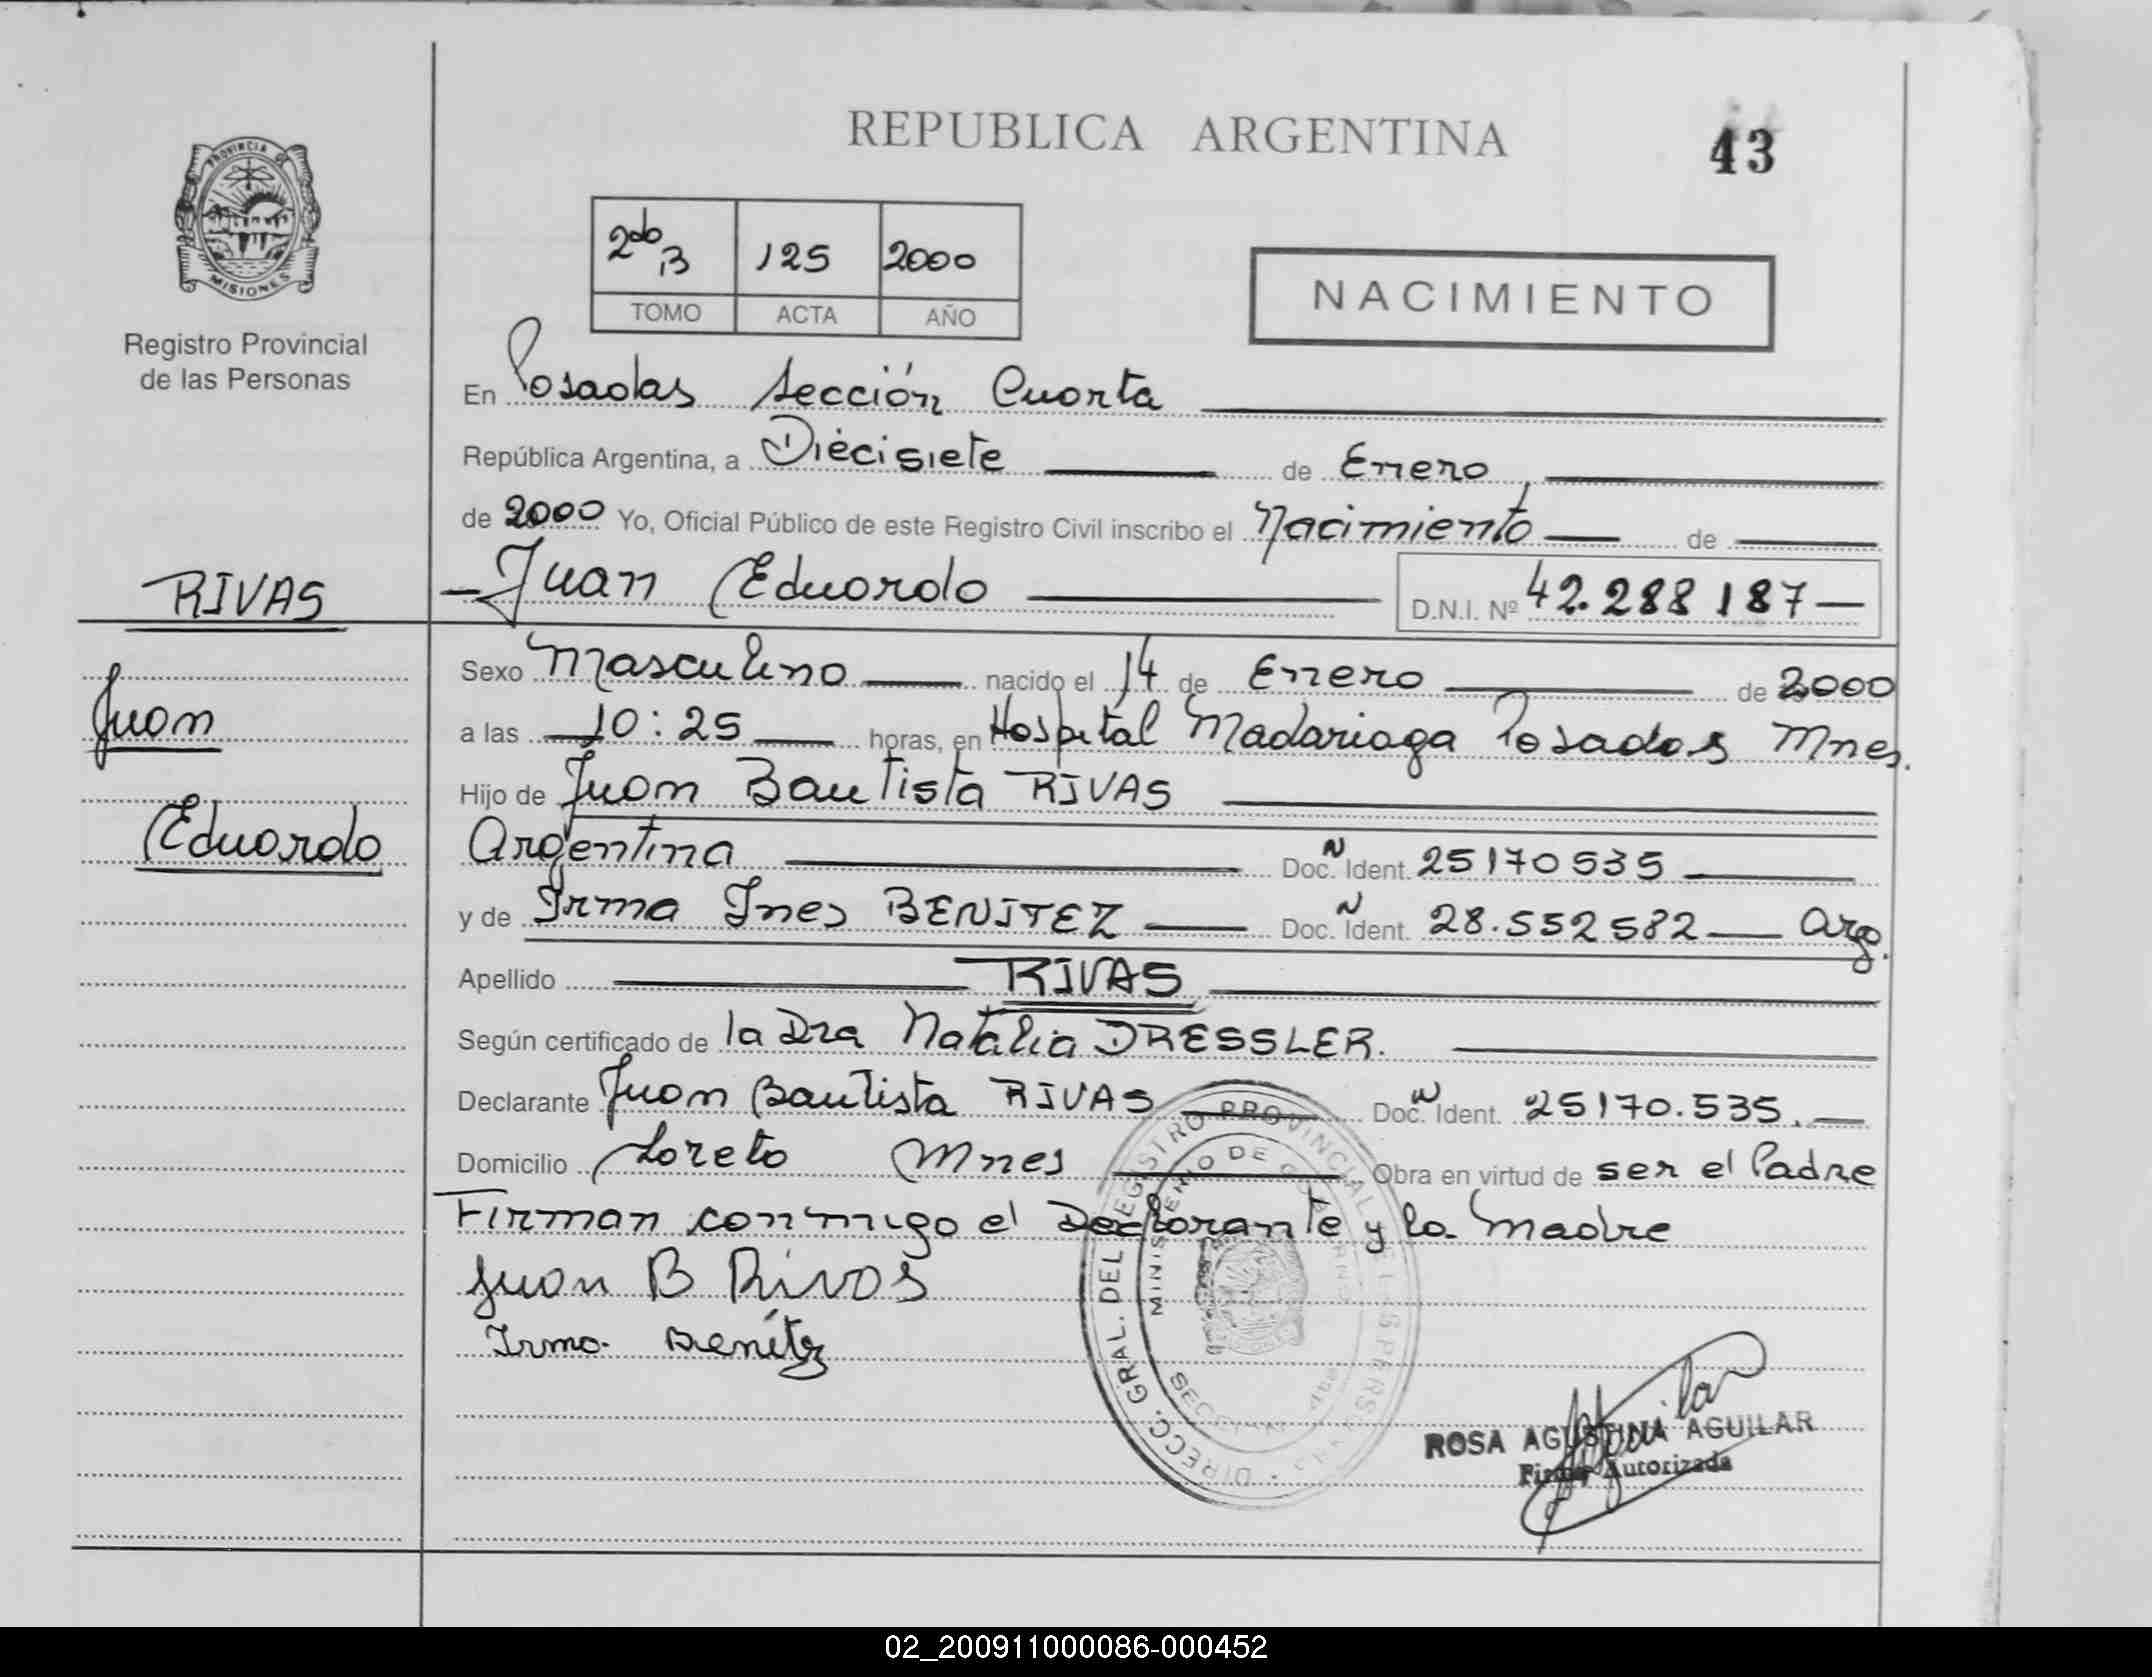 REPUBLICA ARGENTINA
43
PROVINCIA DE
MISIONES
Registro Provincial
de las Personas
2do B 125 2000
TOMO ACTA AÑO
NACIMIENTO
En Posadas Sección Cuarta
República Argentina, a Diecisiete de Enero
de 2000 Yo, Oficial Público de este Registro Civil inscribo el Nacimiento de
Juan Eduardo D.N.I. Nº 42.288187
RIVAS
Juan
Eduardo
Sexo Masculino nacido el 14 de Enero de 2000
a las 10:25 horas, en Hospital Madariaga Posadas Mnes.
Hijo de Juan Bautista RIVAS
Argentina Doc. N Ident. 25170535
y de Irma Ines BENITEZ Doc. N Ident. 28.552582 Arg.
Apellido RIVAS
Según certificado de la Dra Natalia DRESSLER.
Declarante Juan Bautista RIVAS Doc. N Ident. 25170.535.
Domicilio Loreto Mnes Obra en virtud de ser el Padre
Firman conmigo el Declarante y la Madre
Juan B Rivas
Irma Benítez
DIRECC. GRAL. DEL REGISTRO PROVINCIAL
MINISTERIO DE
Aguilar
ROSA AGUSTINA AGUILAR
Firma Autorizada
02_200911000086-000452